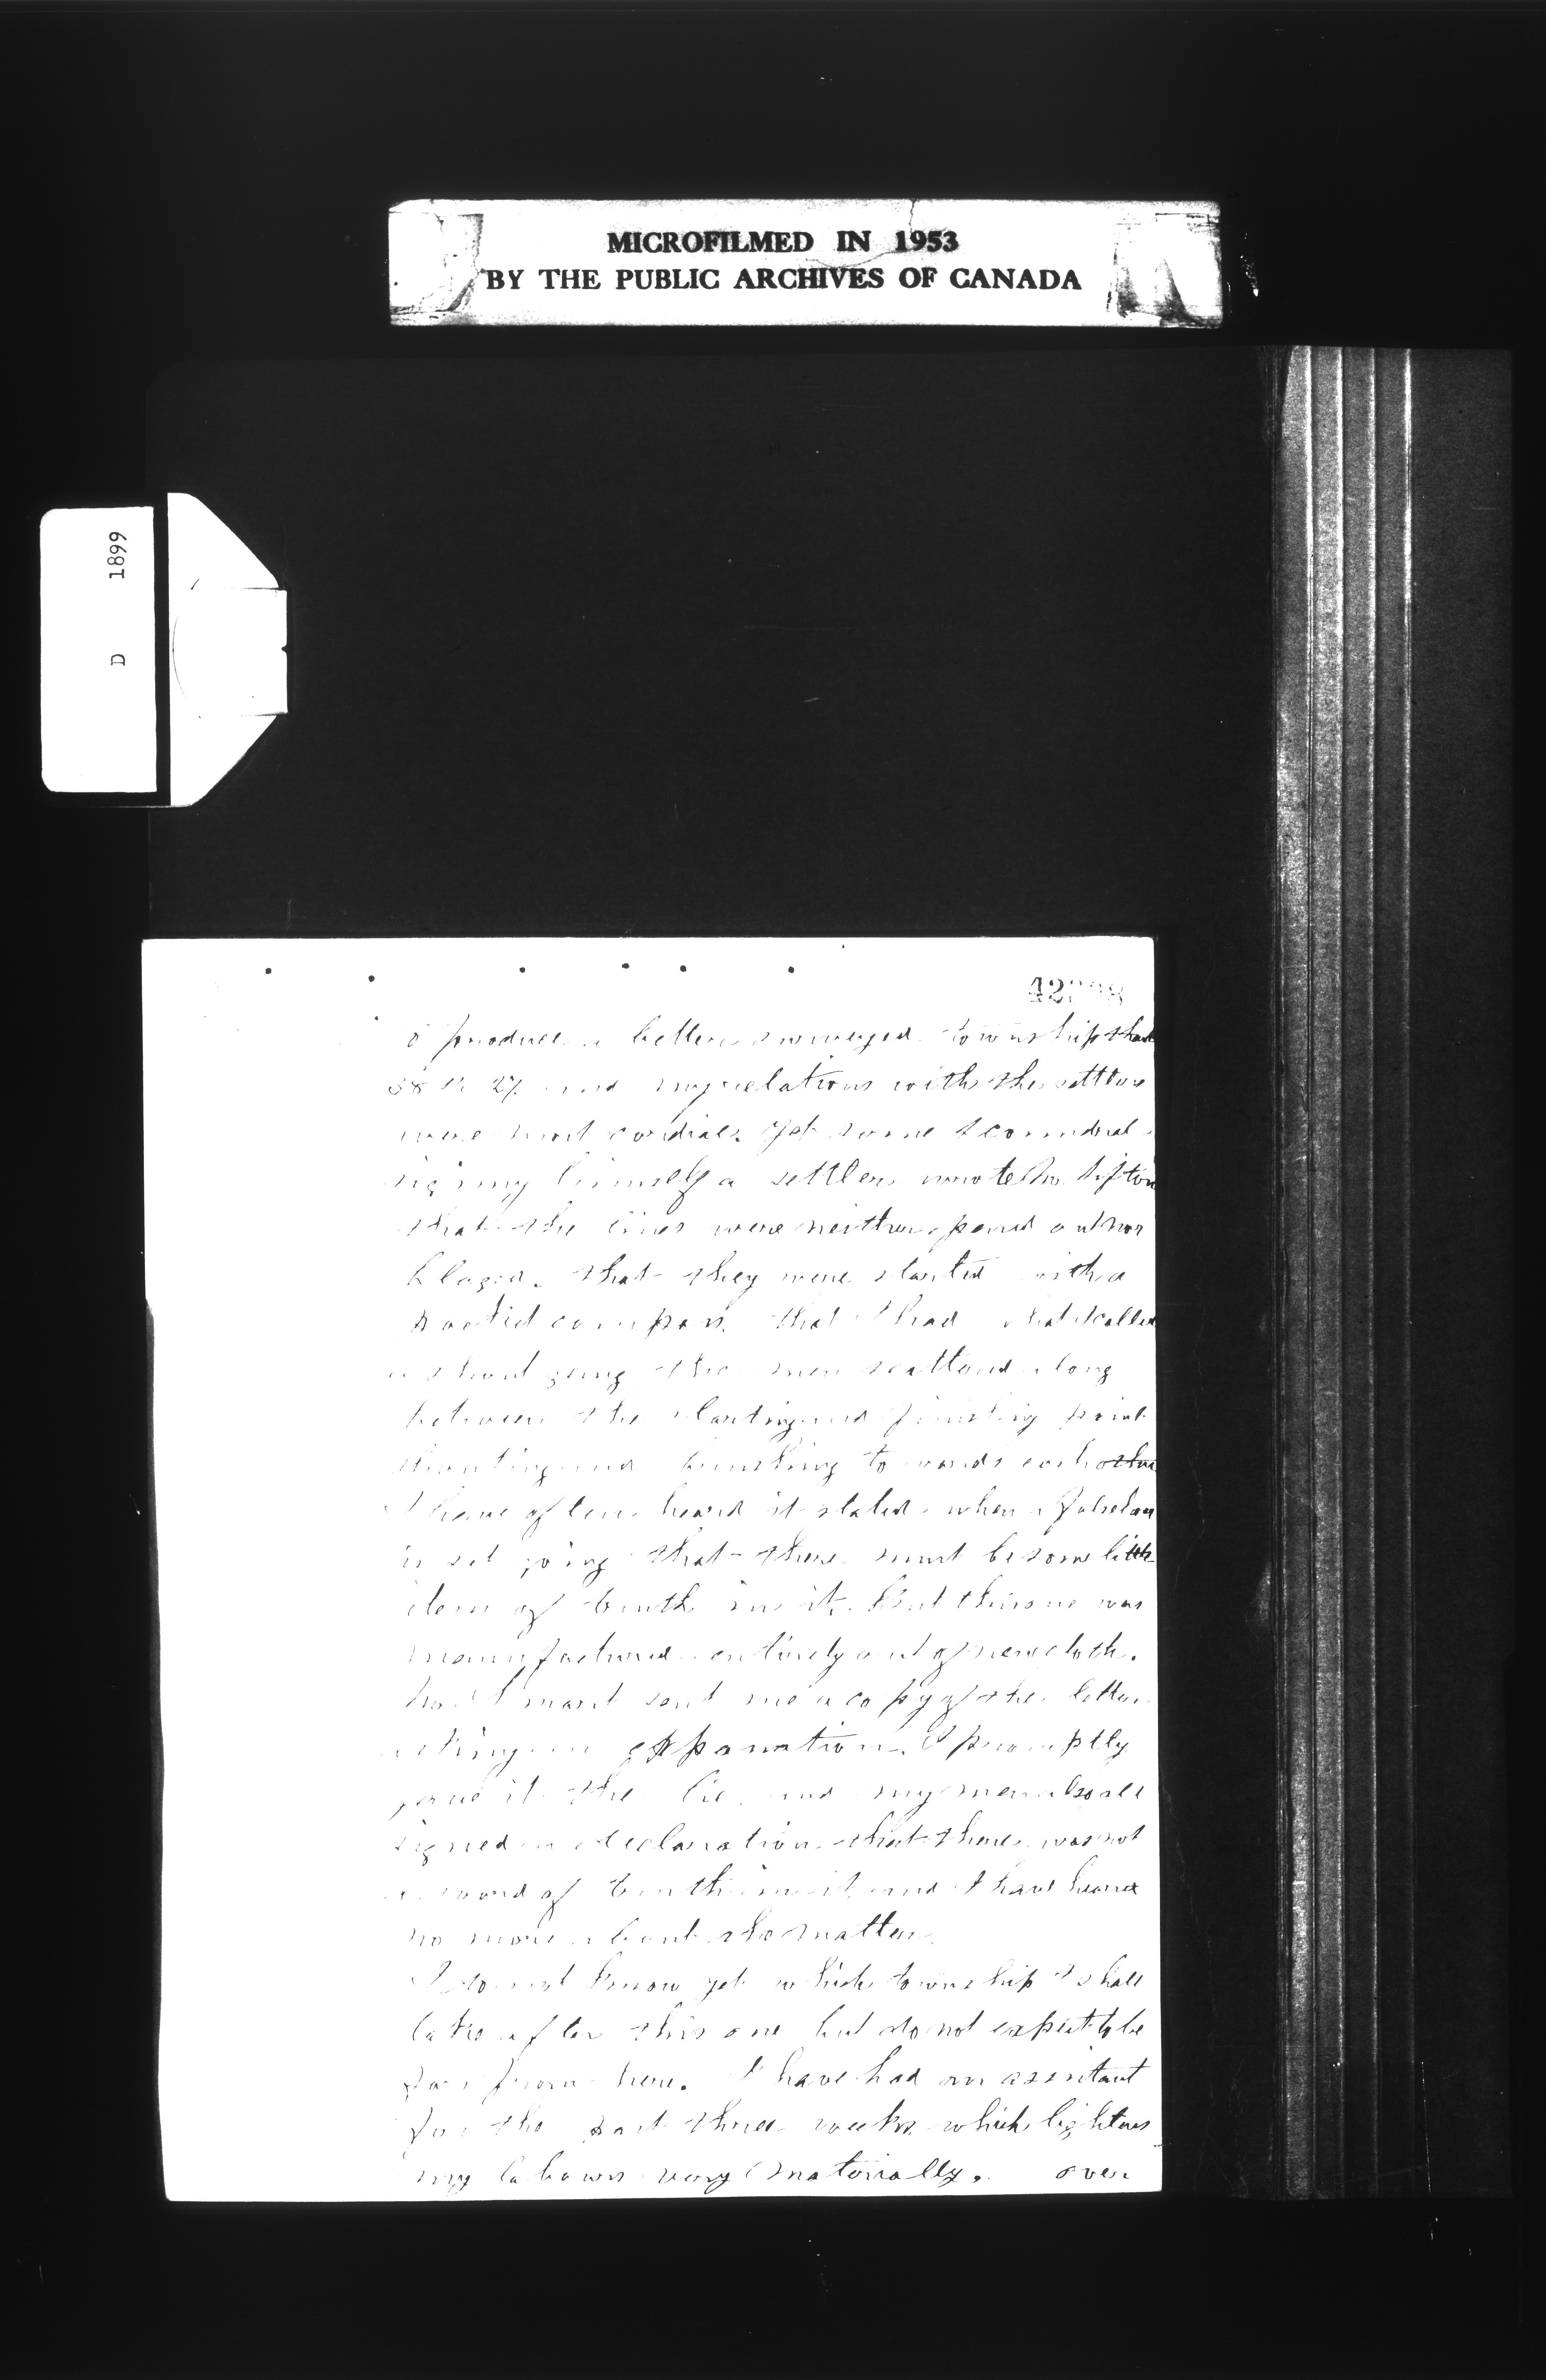 MICROFILMED IN 1953
BY THE PUBLIC ARCHIVES OF CANADA
D 1899
produce a better surveyed township than
and my relations with the settlers
were most cordial. Yet some scoundrel
signing himself a settler wrote Mr. Sifton
that the lines were neither opened out nor
blazed. that they were started with a
pocket compass. that I had what I called
gang the men scattered along
between the starting and finishing point
shouting and towards each other
I have often heard it stated when a falsehood
is set going that there must be some little
item of truth in it. But this one was
manufactured entirely out of new cloth.
sent me a copy of the letter
asking an explanation. I promptly
gave it the lie and my men also all
signed a declaration that there was not
a word of truth in it and I have heard
no more about the matter.
I do not know yet which township I shall
take after this one but do not expect to be
far from here. I have had an assistant
for the past three weeks which lightens
my labours very materially. over